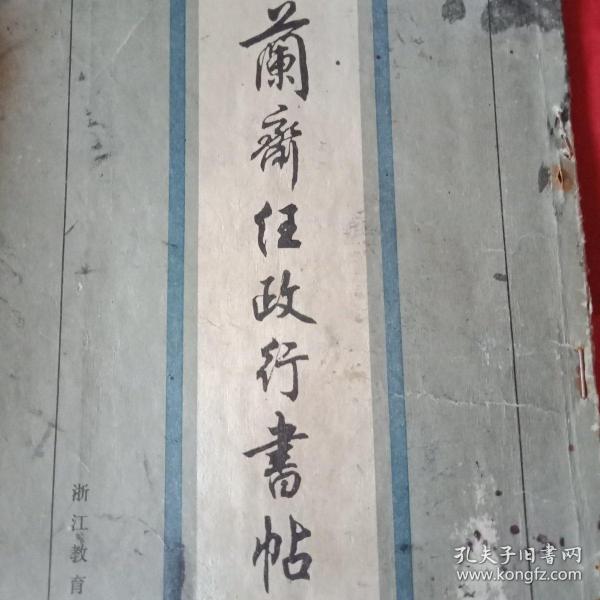 蘭齋任政行書帖
浙江教育
孔夫子旧书网
www.kongfz.com